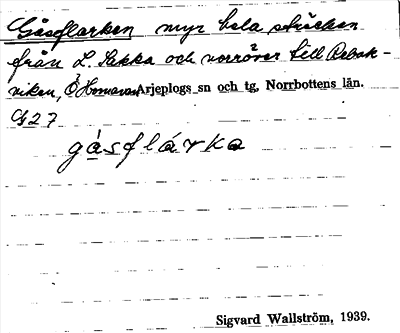 Gåsflarken myr hela sträckan
från L. Sakka och norröver till Rebak-
viken, Ö Hornavan Arjeplogs sn och tg, Norrbottens län.
G 27
gásflárka
Sigvard Wallström, 1939.